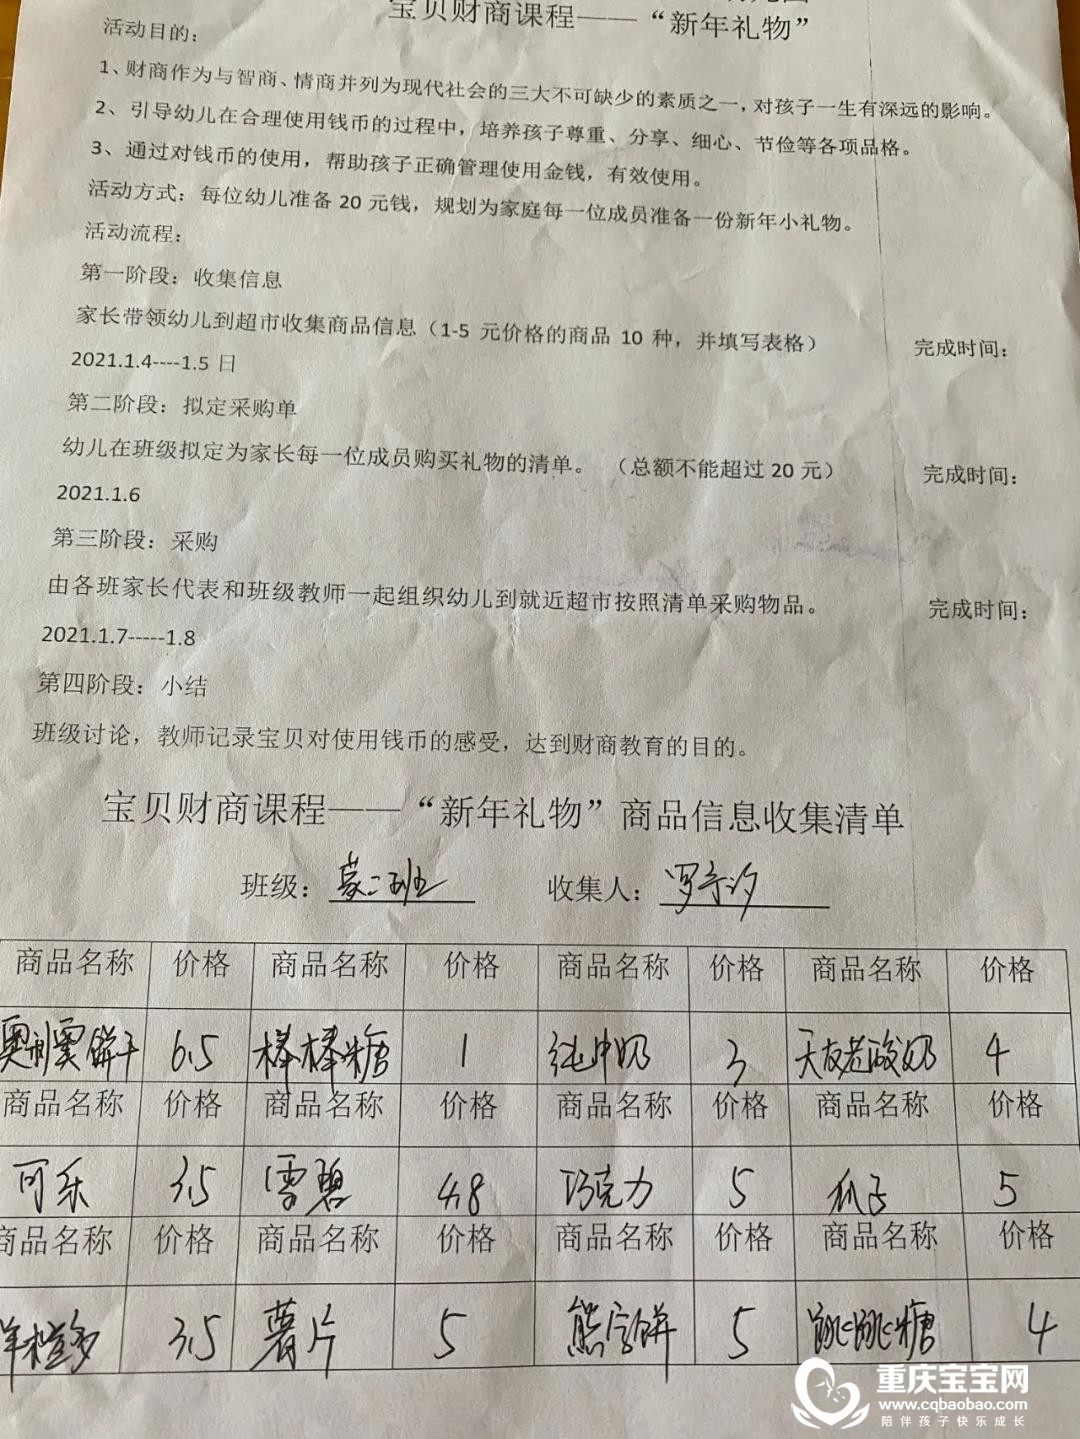 宝贝财商课程——“新年礼物”
活动目的：
1、财商作为与智商、情商并列为现代社会的三大不可缺少的素质之一，对孩子一生有深远的影响。
2、引导幼儿在合理使用钱币的过程中，培养孩子尊重、分享、细心、节俭等各项品格。
3、通过对钱币的使用，帮助孩子正确管理使用金钱，有效使用。
活动方式：每位幼儿准备 20 元钱，规划为家庭每一位成员准备一份新年小礼物。
活动流程：
第一阶段：收集信息
家长带领幼儿到超市收集商品信息（1-5 元价格的商品 10 种，并填写表格） 完成时间：
2021.1.4----1.5 日
第二阶段：拟定采购单
幼儿在班级拟定为家长每一位成员购买礼物的清单。 （总额不能超过 20 元） 完成时间：
2021.1.6
第三阶段：采购
由各班家长代表和班级教师一起组织幼儿到就近超市按照清单采购物品。 完成时间：
2021.1.7-----1.8
第四阶段：小结
班级讨论，教师记录宝贝对使用钱币的感受，达到财商教育的目的。
宝贝财商课程——“新年礼物”商品信息收集清单
班级：蒙二班 收集人：罗
商品名称 价格 商品名称 价格 商品名称 价格 商品名称 价格
奥利奥饼干 6.5 棒棒糖 1 纯牛奶 3 天友老酸奶 4
商品名称 价格 商品名称 价格 商品名称 价格 商品名称 价格
可乐 3.5 雪碧 4.8 巧克力 5 瓜子 5
商品名称 价格 商品名称 价格 商品名称 价格 商品名称 价格
3.5 薯片 5 熊字饼 5 跳跳糖 4
重庆宝宝网
www.cqbaobao.com
陪伴孩子快乐成长